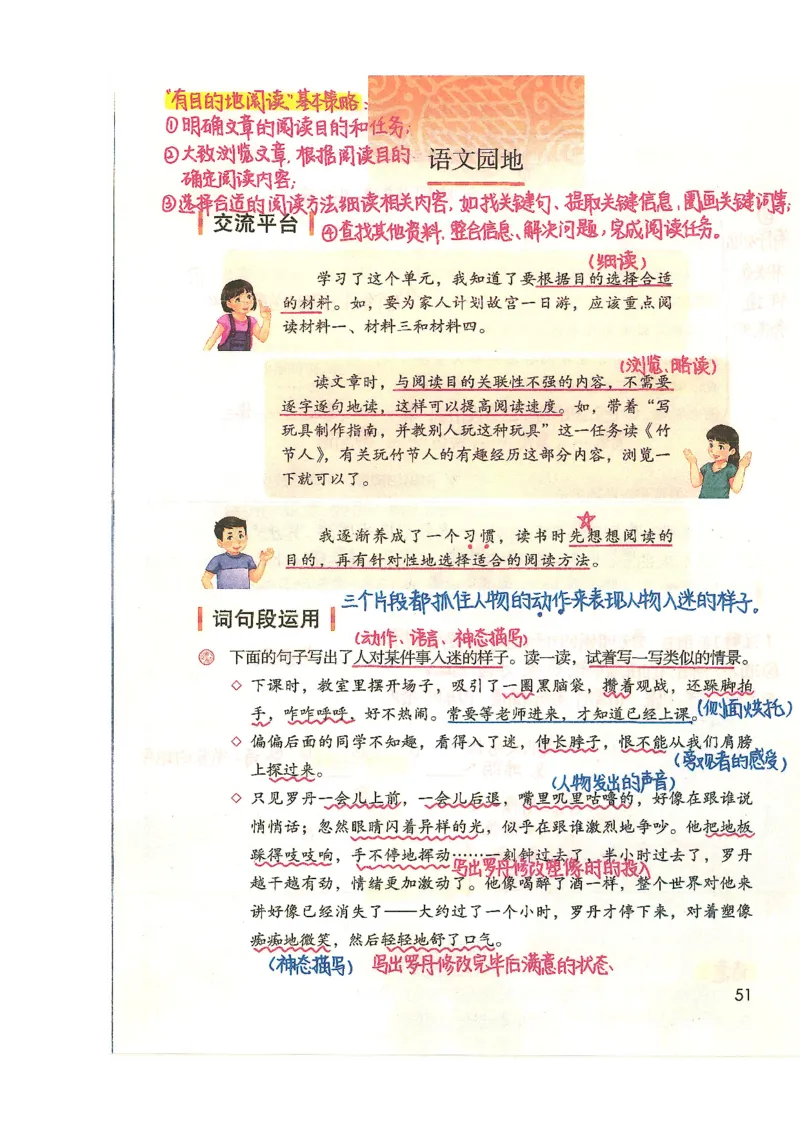 "有目的地阅读"基本策略：
①明确文章的阅读目的和任务；
②大致浏览文章，根据阅读目的
确定阅读内容；
语文园地
③选择合适的阅读方法细读相关内容，如找关键句、提取关键信息、圈画关键词等；
交流平台
④查找其他资料，整合信息、解决问题，完成阅读任务。
（细读）
学习了这个单元，我知道了要根据目的选择合适
的材料。如，要为家人计划故宫一日游，应该重点阅
读材料一、材料三和材料四。
（浏览、略读）
读文章时，与阅读目的关联性不强的内容，不需要
逐字逐句地读，这样可以提高阅读速度。如，带着“写
玩具制作指南，并教别人玩这种玩具”这一任务读《竹
节人》，有关玩竹节人的有趣经历这部分内容，浏览一
下就可以了。
我逐渐养成了一个习惯，读书时先想想阅读的
目的，再有针对性地选择适合的阅读方法。
三个片段都抓住人物的动作来表现人物入迷的样子。
词句段运用
（动作、语言、神态描写）
下面的句子写出了人对某件事入迷的样子。读一读，试着写一写类似的情景。
◇ 下课时，教室里摆开场子，吸引了一圈黑脑袋，攒着观战，还跺脚拍
手，咋咋呼呼，好不热闹。常要等老师进来，才知道已经上课。（侧面烘托）
◇ 偏偏后面的同学不知趣，看得入了迷，伸长脖子，恨不能从我们肩膀
上探过来。
（旁观者的感受）
（人物发出的声音）
◇ 只见罗丹一会儿上前，一会儿后退，嘴里叽里咕噜的，好像在跟谁说
悄悄话；忽然眼睛闪着异样的光，似乎在跟谁激烈地争吵。他把地板
踩得吱吱响，手不停地挥动……一刻钟过去了，半小时过去了，罗丹
写出罗丹修改塑像时的投入
越干越有劲，情绪更加激动了。他像喝醉了酒一样，整个世界对他来
讲好像已经消失了——大约过了一个小时，罗丹才停下来，对着塑像
痴痴地微笑，然后轻轻地舒了口气。
（神态描写） 写出罗丹修改完毕后满意的状态、
51